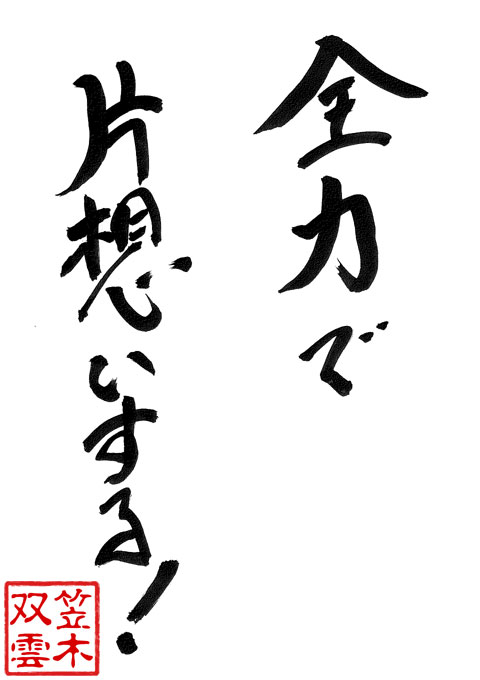 全力で
片想いする!
笠木
双雲